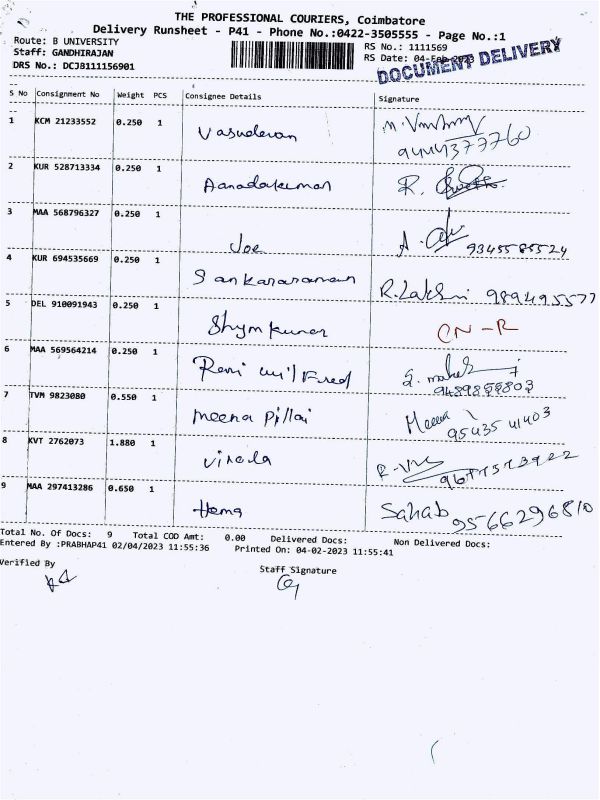 THE PROFESSIONAL COURIERS, Coimbatore
Delivery Runsheet - P41 - Phone No.:0422-3505555 - Page No.:1
Route: B UNIVERSITY
RS No.: 1111569
Staff: GANDHIRAJAN
RS Date: 04-Feb-2023
DRS No.: DCJ8111156901
DOCUMENT DELIVERY
S No Consignment No Weight PCS Consignee Details Signature
1 KCM 21233552 0.250 1 Vasudevan
2 KUR 528713334 0.250 1 Aanadakumar R.
3 MAA 568796327 0.250 1 Joe A. 9345585524
4 KUR 694535669 0.250 1 Sankararaman R.Lakshmi 989495577
5 DEL 910091943 0.250 1 Shymkumar CN-R
6 MAA 569564214 0.250 1 Reni wilfred S. mahesh
9489859803
7 TVM 9823080 0.550 1 meena pillai Meena
9543541403
8 KVT 2762073 1.880 1
9 MAA 297413286 0.650 1 Hema Sahab 9566296810
Total No. Of Docs: 9 Total COD Amt: 0.00 Delivered Docs: Non Delivered Docs:
Entered By :PRABHAP41 02/04/2023 11:55:36 Printed On: 04-02-2023 11:55:41
Verified By Staff Signature